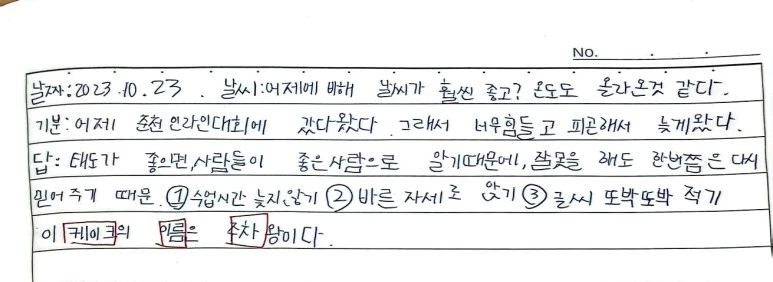 No. . .
날짜: 2023.10.23. 날씨: 어제에 비해 날씨가 훨씬 좋고? 온도도 올라온것 같다.
기분: 어제 춘천 인라인대회에 갔다왔다. 그래서 너무힘들고 피곤해서 늦게왔다.
답: 태도가 좋으면, 사람들이 좋은사람으로 알기때문에, 잘못을 해도 한번쯤은 다시
믿어 주기 때문. ① 수업시간 늦지않기 ② 바른 자세로 앉기 ③ 글씨 또박또박 적기
이 케이크의 이름은 주차왕이다.